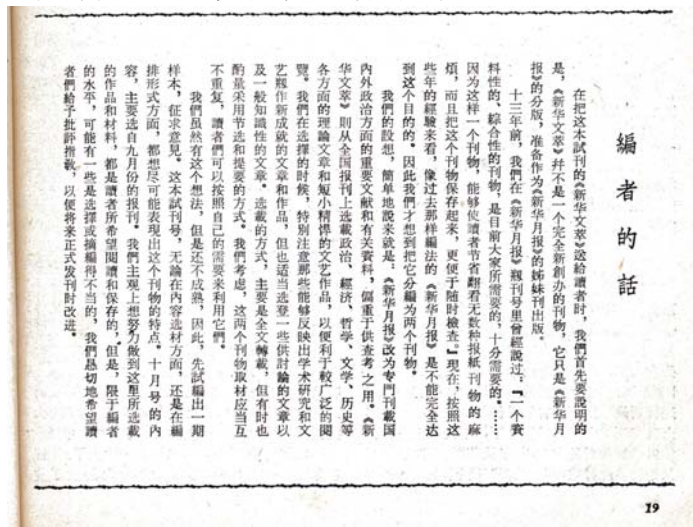 編者的話
在把这本試刊的《新华文萃》送給讀者时，我們首先要說明的
是，《新华文萃》幷不是一个完全新創办的刊物，它只是《新华月
报》的分版，准备作为《新华月报》的姊妹刊出版。
十三年前，我們在《新华月报》覌刊号里曾經說过：『一个資
料性的、綜合性的刊物，是目前大家所需要的，十分需要的。……
因为这样一个刊物，能够使讀者节省翻看无数种报紙刊物的麻
煩，而且把这个刊物保存起来，更便于随时檢查。』現在，按照这
些年的經驗来看，像过去那样編法的《新华月报》是不能完全达
到这个目的的。因此我們才想到把它分編为两个刊物。
我們的設想，簡单地說来就是：《新华月报》改为专門刊載国
內外政治方面的重要文献和有关資料，偏重于供查考之用。《新
华文萃》則从全国报刊上选載政治、經济、哲学、文学、历史等
各方面的理論文章和短小精悍的文艺作品，以便利于較广泛的閱
覽。我們在选擇的时候，特別注意那些能够反映出学术研究和文
艺創作新成就的文章和作品，但也适当选登一些供討論的文章以
及一般知識性的文章。选載的方式，主要是全文轉載，但有时也
酌量采用节选和提要的方式。我們考虑，这两个刊物取材应当互
不重复，讀者們可以按照自己的需要来利用它們。
我們虽然有这个想法，但是还不成熟，因此，先試編出一期
样本，征求意見。这本試刊号，无論在內容选材方面，还是在編
排形式方面，都想尽可能表現出这个刊物的特点。十月号的內
容，主要选自九月份的报刊。我們主观上想努力做到这里所选載
的作品和材料，都是讀者所希望閱讀和保存的。但是，限于編者
的水平，可能有一些是选擇或摘編得不当的，我們恳切地希望讀
者們給予批評指敎，以便将来正式发刊时改进。
19